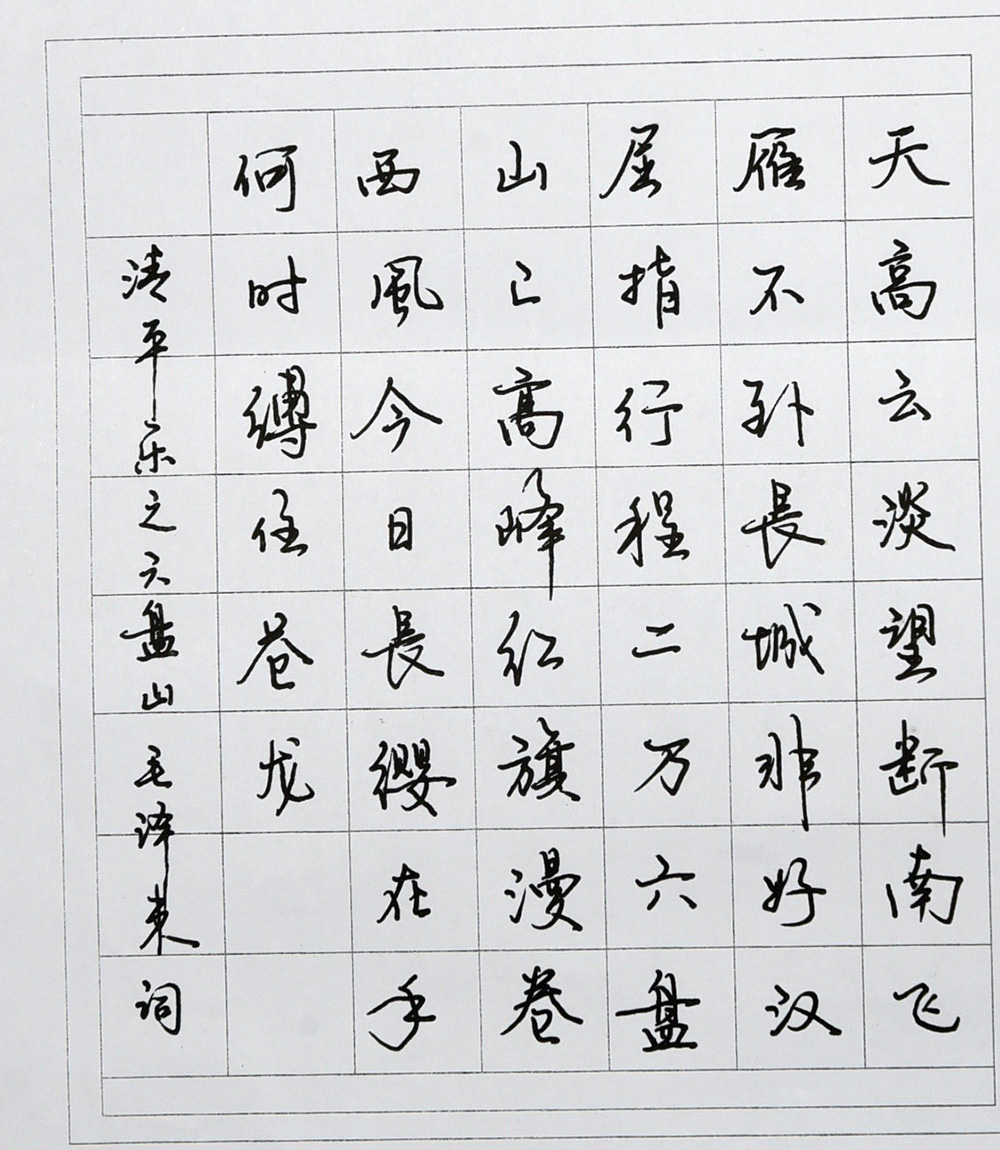 天高云淡望断南飞
雁不到長城非好汉
屈指行程二万六盘
山上高峰红旗漫卷
西風今日長缨在手
何时缚住苍龙
清平乐之六盘山 毛泽東词